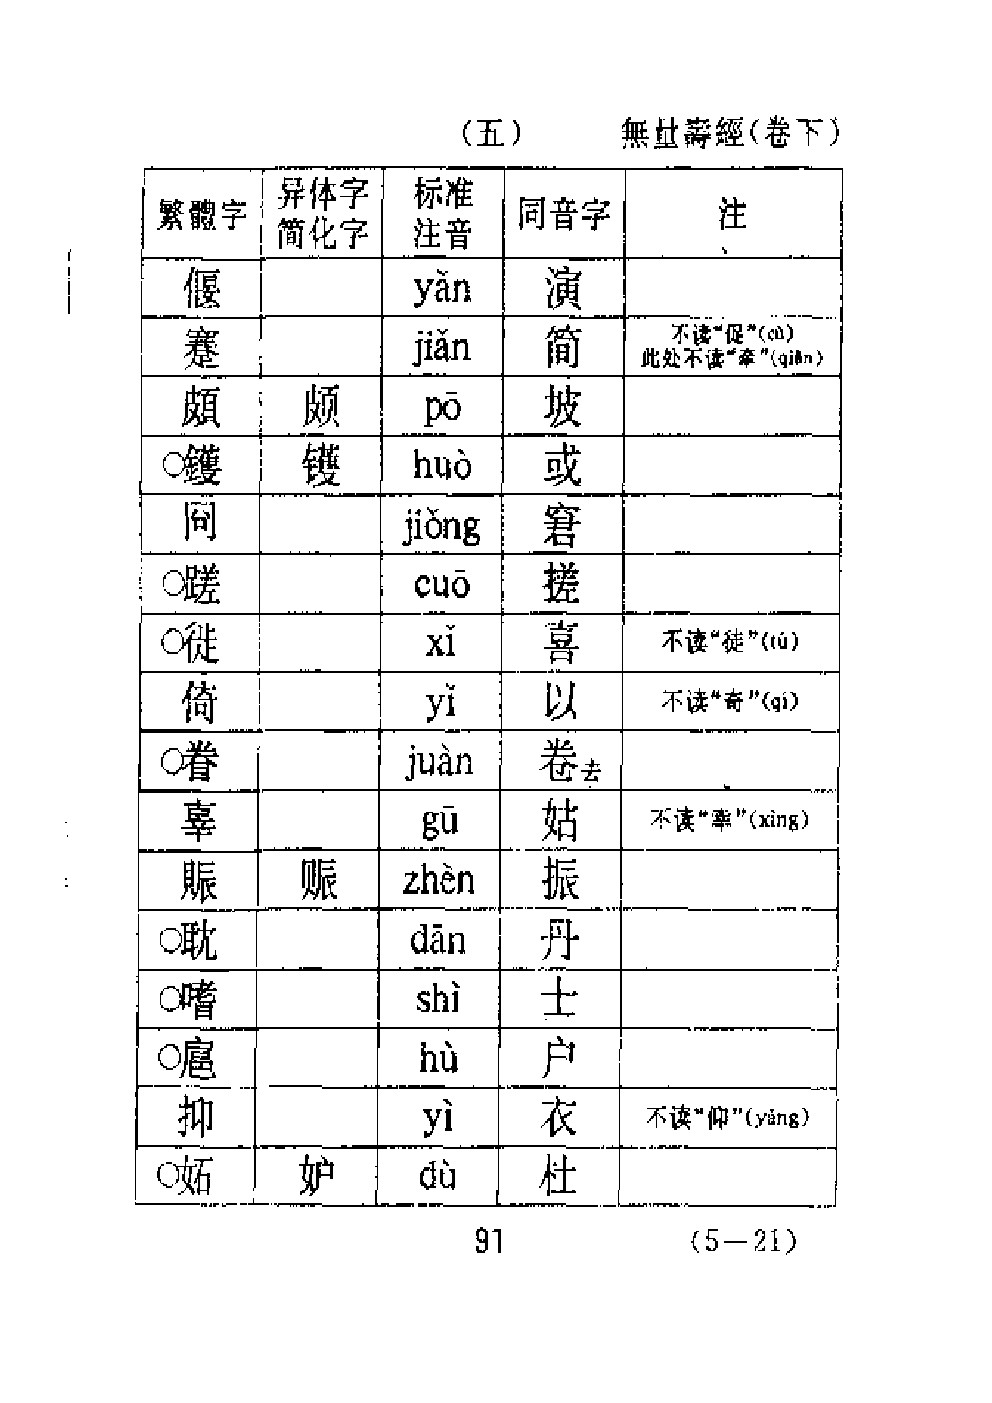 (五) 無量壽經(卷下)
繁體字 异体字简化字 标准注音 同音字 注
偃 yǎn 演
蹇 jiǎn 简 不读“促”(cù) 此处不读“牵”(qiān)
頗 颇 pō 坡
○鑊 镬 huò 或
冏 jiǒng 窘
○蹉 cuō 搓
○徙 xǐ 喜 不读“徒”(tú)
倚 yǐ 以 不读“奇”(qí)
○眷 juàn 卷去
辜 gū 姑 不读“辜”(xìng)
賑 赈 zhèn 振
○耽 dān 丹
○嗜 shì 士
○扈 hù 户
抑 yì 衣 不读“仰”(yǎng)
○妬 妒 dù 杜
91 (5－21)